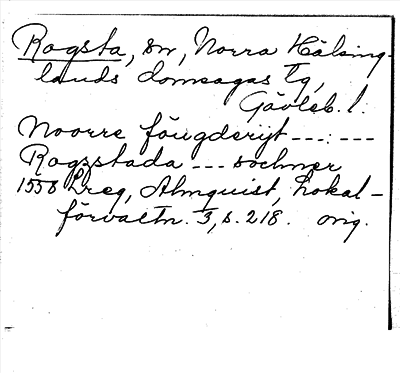 Rogsta, sn, Norra Hälsing-
lands domsagas tg,
Gävleb. l.
Noorre föugderijt ---:---
Rogzstada --- sochner
1558 Lreg, Almquist, Lokal-
förvaltn. 3, s. 218. orig.